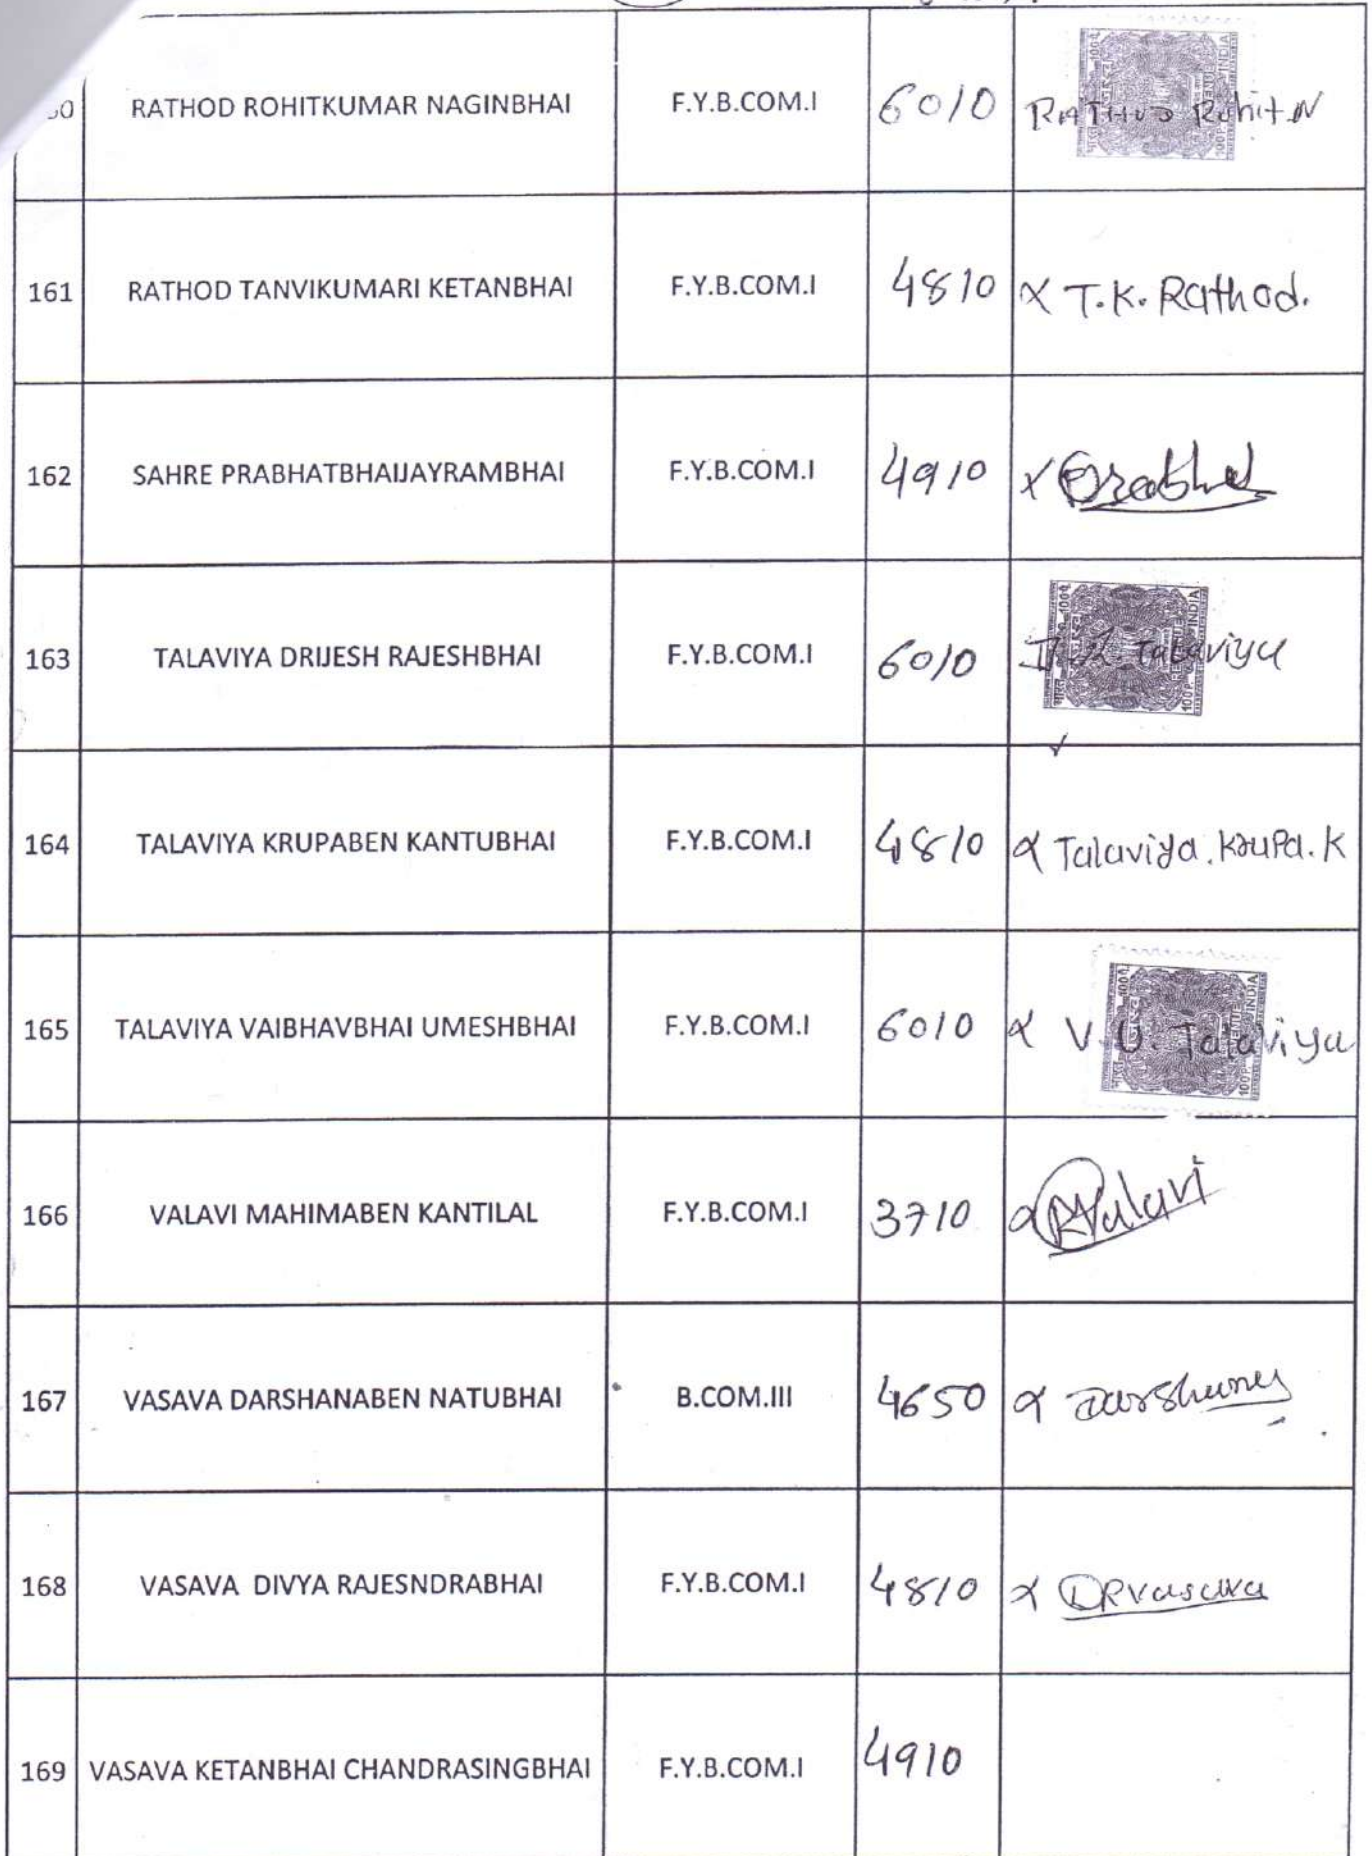 RATHOD ROHITKUMAR NAGINBHAI F.Y.B.COM.I 6010 RATHOD Rohit N
161 RATHOD TANVIKUMARI KETANBHAI F.Y.B.COM.I 4810 x T.K. Rathod.
162 SAHRE PRABHATBHAIJAYRAMBHAI F.Y.B.COM.I 4910 x
163 TALAVIYA DRIJESH RAJESHBHAI F.Y.B.COM.I 6010 Talaviya
164 TALAVIYA KRUPABEN KANTUBHAI F.Y.B.COM.I 4810 x Talaviya. Krupa. K
165 TALAVIYA VAIBHAVBHAI UMESHBHAI F.Y.B.COM.I 6010 x V.U. Talaviya
166 VALAVI MAHIMABEN KANTILAL F.Y.B.COM.I 3710 x
167 VASAVA DARSHANABEN NATUBHAI B.COM.III 4650 x
168 VASAVA DIVYA RAJESNDRABHAI F.Y.B.COM.I 4810 x DRVasava
169 VASAVA KETANBHAI CHANDRASINGBHAI F.Y.B.COM.I 4910